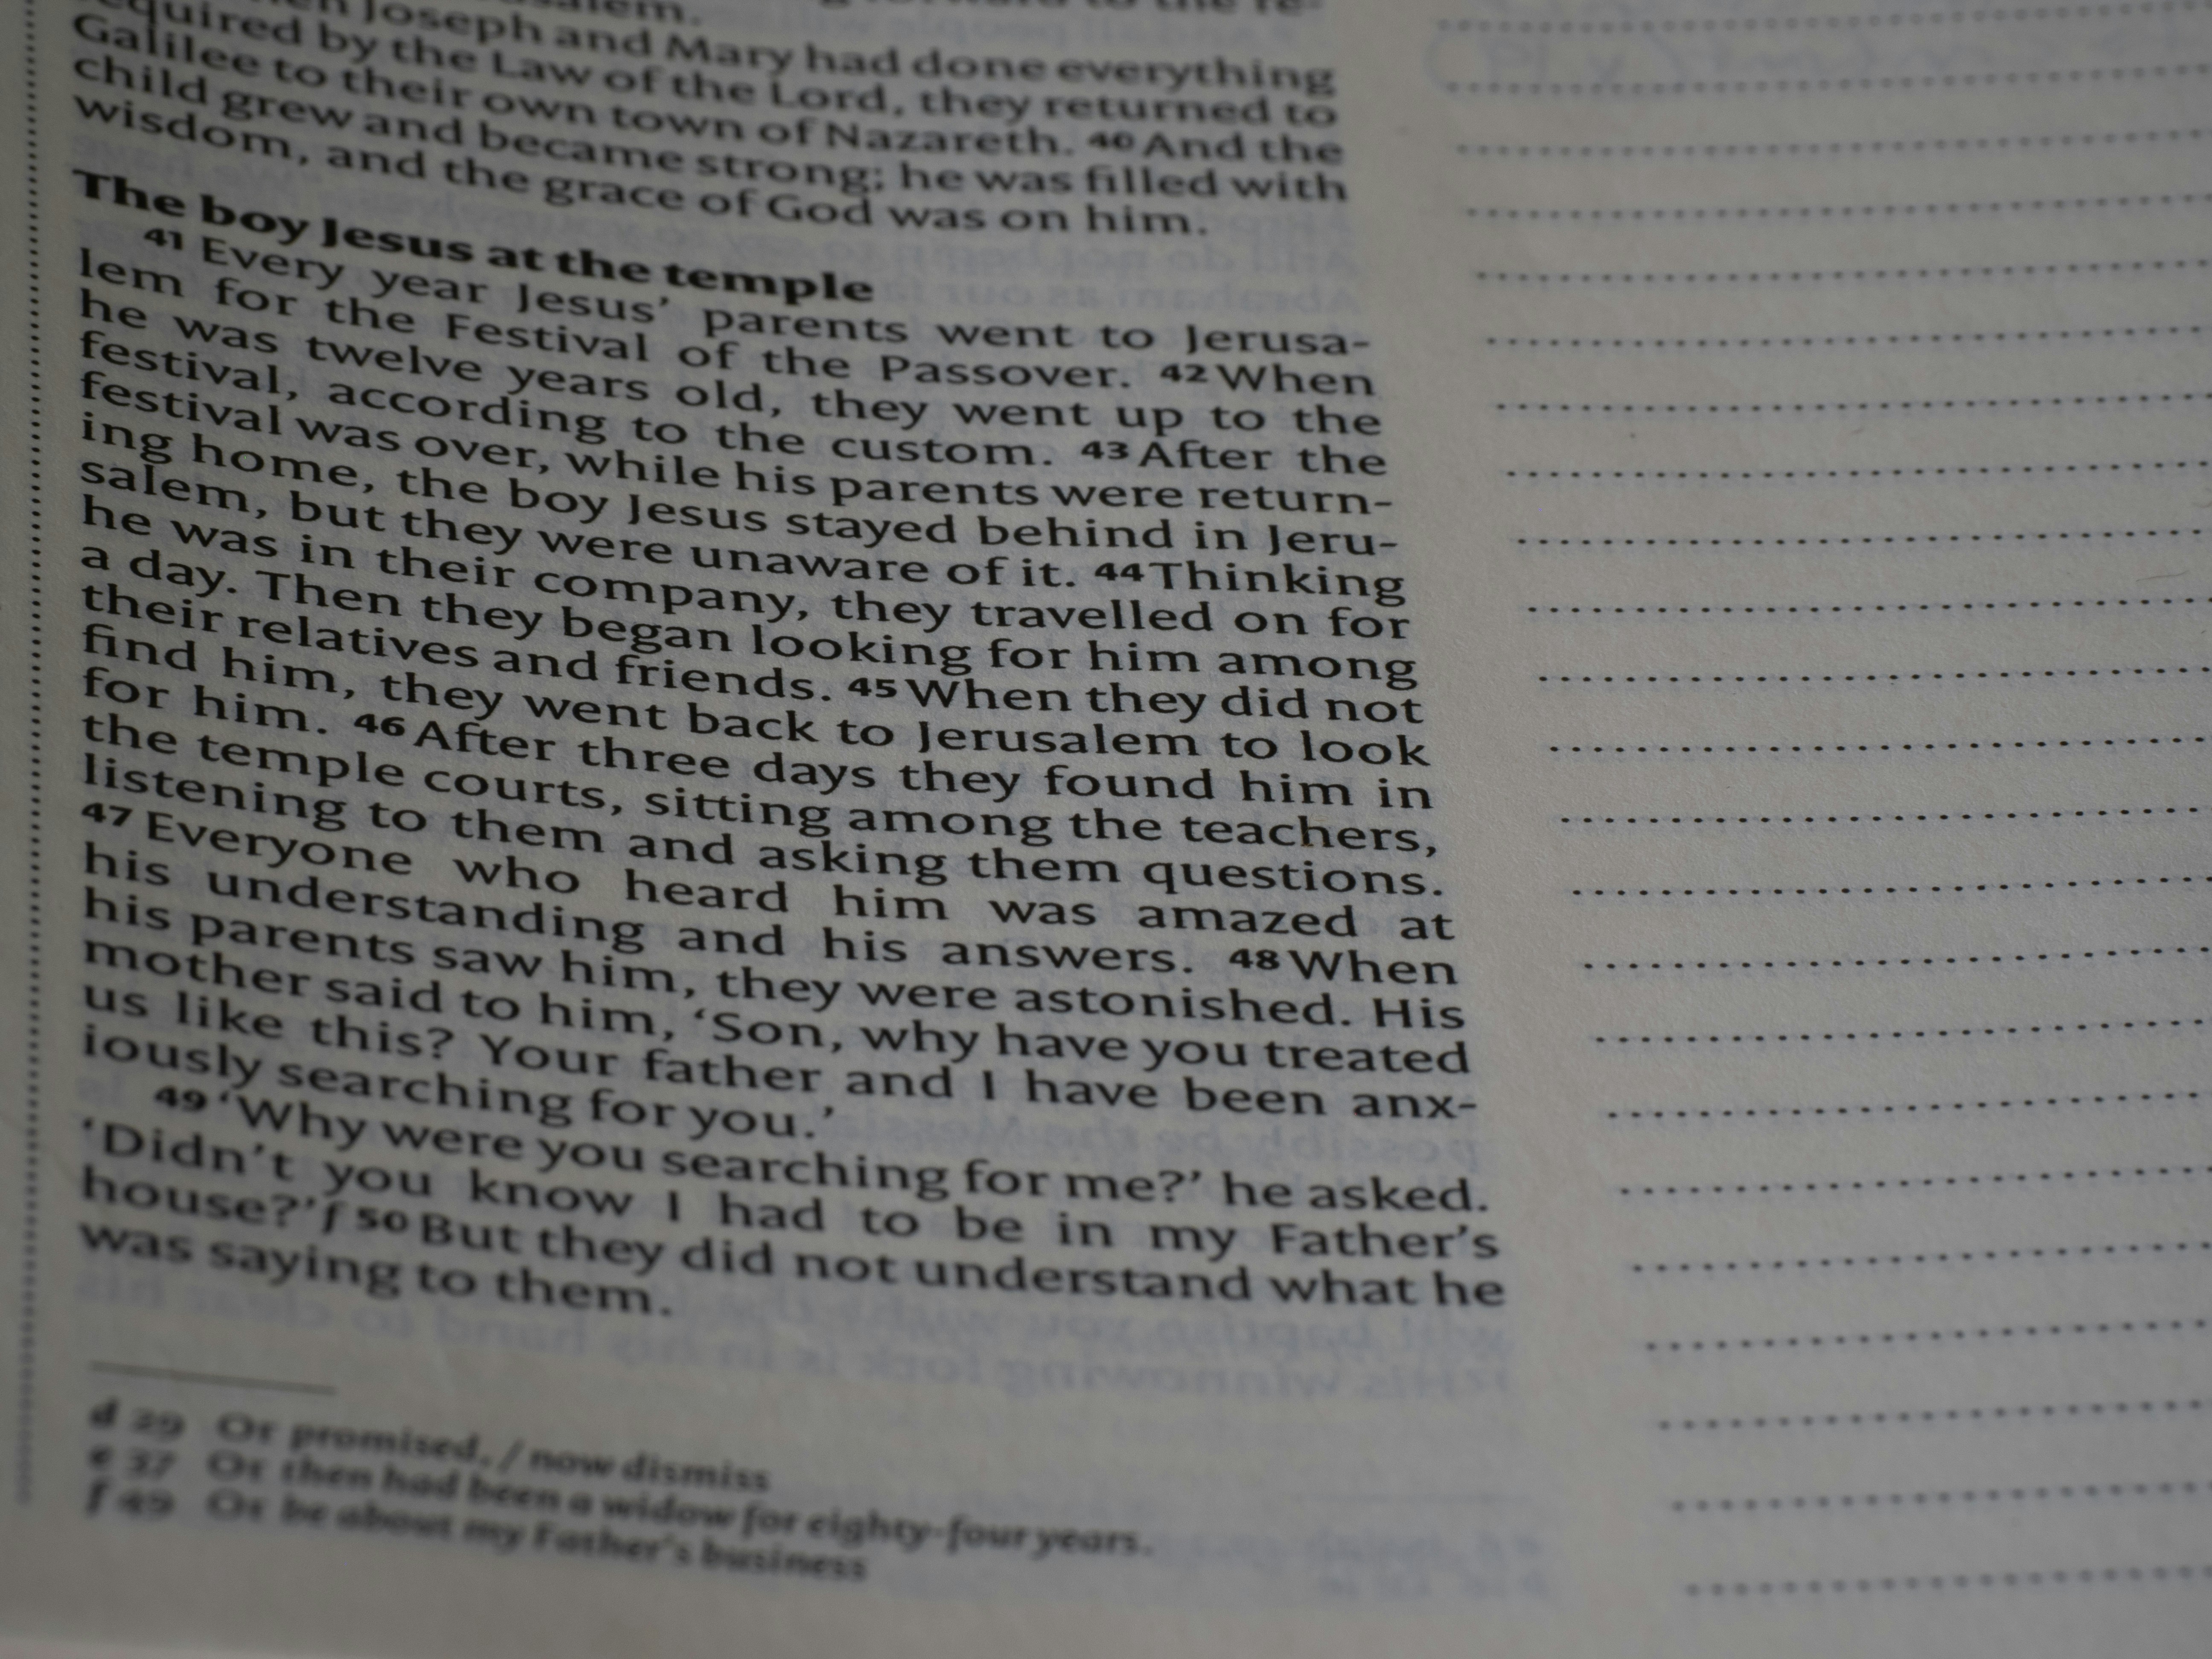 Joseph and Mary had done everything
required by the Law of the Lord, they returned to
Galilee to their own town of Nazareth. 40 And the
child grew and became strong; he was filled with
wisdom, and the grace of God was on him.
The boy Jesus at the temple
41 Every year Jesus’ parents went to Jerusa-
lem for the Festival of the Passover. 42 When
he was twelve years old, they went up to the
festival, according to the custom. 43 After the
festival was over, while his parents were return-
ing home, the boy Jesus stayed behind in Jeru-
salem, but they were unaware of it. 44 Thinking
he was in their company, they travelled on for
a day. Then they began looking for him among
their relatives and friends. 45 When they did not
find him, they went back to Jerusalem to look
for him. 46 After three days they found him in
the temple courts, sitting among the teachers,
listening to them and asking them questions.
47 Everyone who heard him was amazed at
his understanding and his answers. 48 When
his parents saw him, they were astonished. His
mother said to him, ‘Son, why have you treated
us like this? Your father and I have been anx-
iously searching for you.’
49 ‘Why were you searching for me?’ he asked.
‘Didn’t you know I had to be in my Father’s
house?’ f 50 But they did not understand what he
was saying to them.
d 29 Or promised, / now dismiss
e 37 Or then had been a widow for eighty-four years.
f 49 Or be about my Father’s business